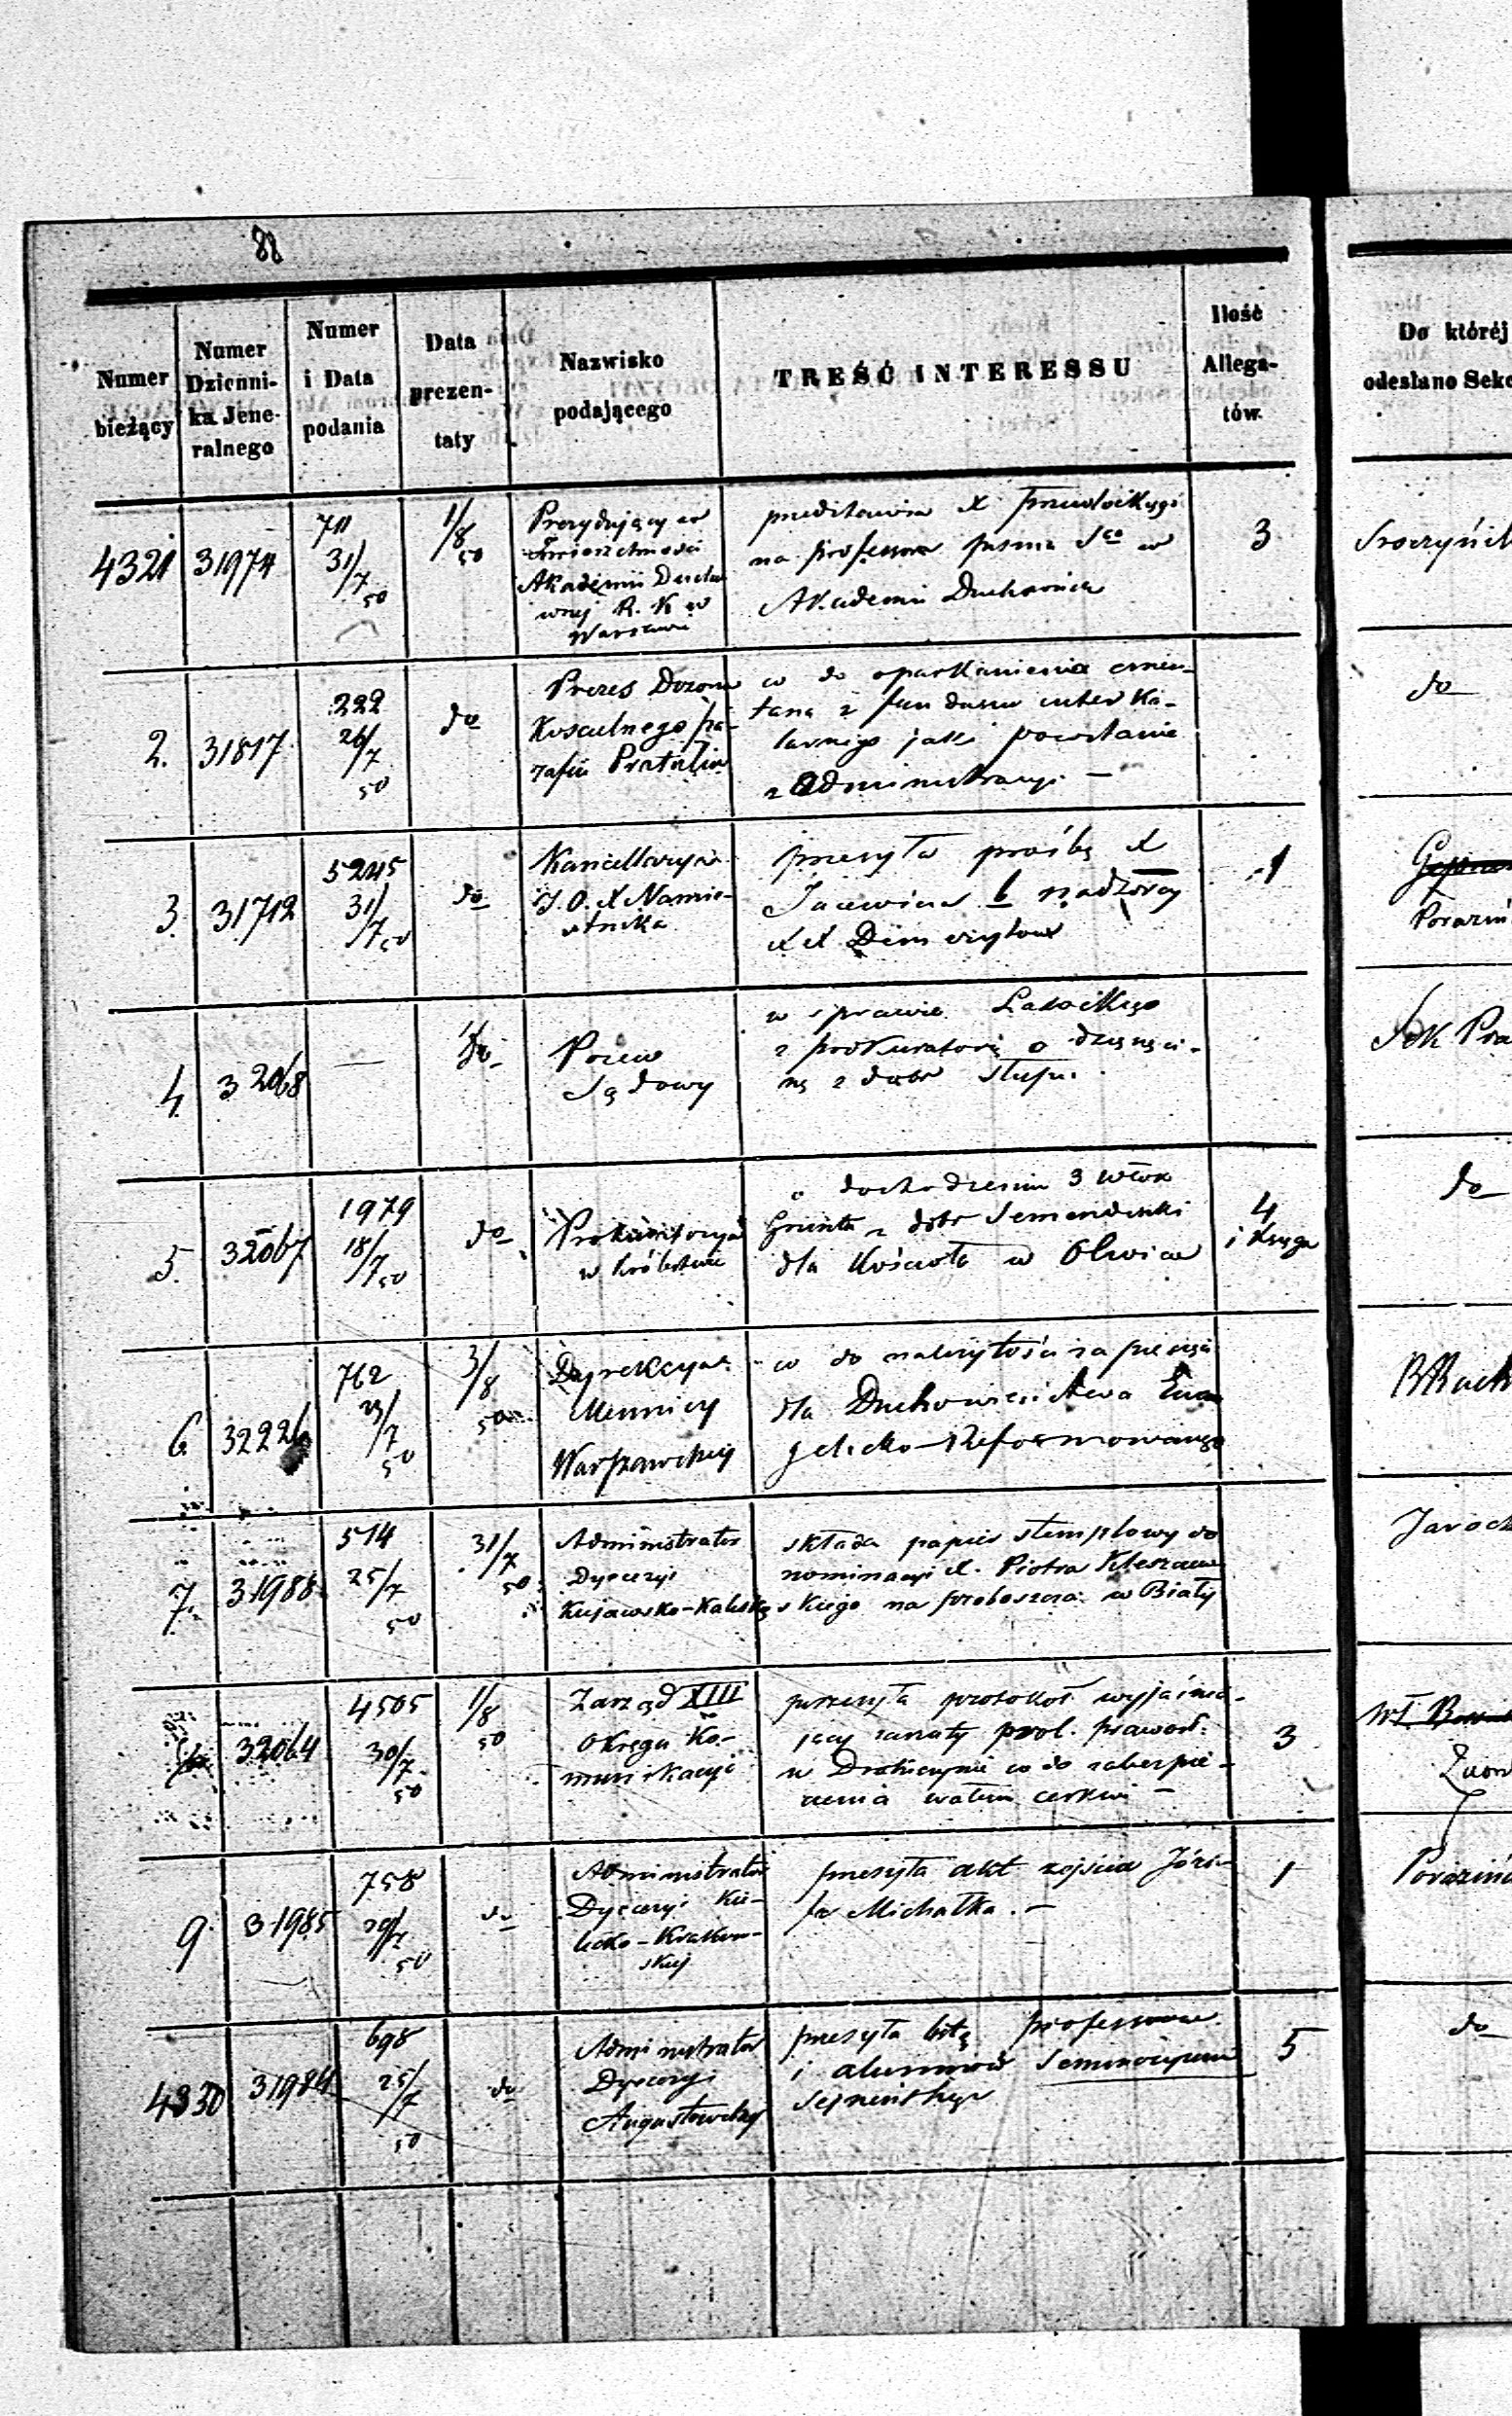 88
Numer bieżący
Numer Dzienni- ka Jene- ralnego
Numer i Data podania
Data prezen- taty
Nazwisko podającego
TREŚĆ INTERESSU
Ilość Allega- tów.
Do któréj
odesłano Sekc
4321 31974
711
31/7 50
1/8 50
Prezydujący w
Zwierzchności
Akademii Ducho
wnej R. K w
Warszawie
przedstawia X
na professora pisma Sgo w
Akademii Duchownej
3
2. 31817
222
26/7
50
do
Prezes Dozoru
Kościelnego pa-
rafii Pratulin
co do oparkanienia cmen-
tarza z funduszu interka-
larnego jak powstanie
z administracyi —
do
3. 31712
5245
31/7 50
do
Kancellarya
J. O. X Namie-
stnika
przesyła prośbę X
b nadzorcy
XX Demerytów
1
4 32068
—
do
Pozew
Sądowy
w sprawie
z prokuratorią o dziesięci-
nę z dóbr Słupi.
Sek Pra
5. 32067
1979
18/7 50
do
Prokuratorya
w Królestwie
o dochodzeniu 3 włók
Gruntu z dóbr
dla Kościoła w
4
i Księga
do
6 32226
762
23/7
50
3/8
50
Dyrekcya
Mennicy
Warszawskiej
co do należytości za pieczęci
dla Duchowieństwa Ewan
gelicko-Reformowanego
7. 31988
514
25/7
50
31/7
50
Administrator
Dyecezyi
Kujawsko-Kaliskiej
składa papier stemplowy do
nominacyi X. Piotra
skiego na proboszcza w Białej
32064
4505
30/7
50
1/8
50
Zarząd XIII
Okręgu Ko-
munikacyi
przesyła protokół wyjaśnia-
jący zarzuty prob. prawosł.
w Drohiczynie co do zabezpie-
czenia wałem cerkwi —
3
9. 31985
758
29/7
50
do
Administrator
Dyecezyi Kie-
lecko-Krakow-
skiej
przesyła akt zejścia Józe-
fa Michałka. —
1
4330 31984
698
25/7
50
do
Administrator
Dyecezyi
Augustowskiej
przesyła listę professorów
i alumnów Seminaryum
Sejneńskiego
5
do